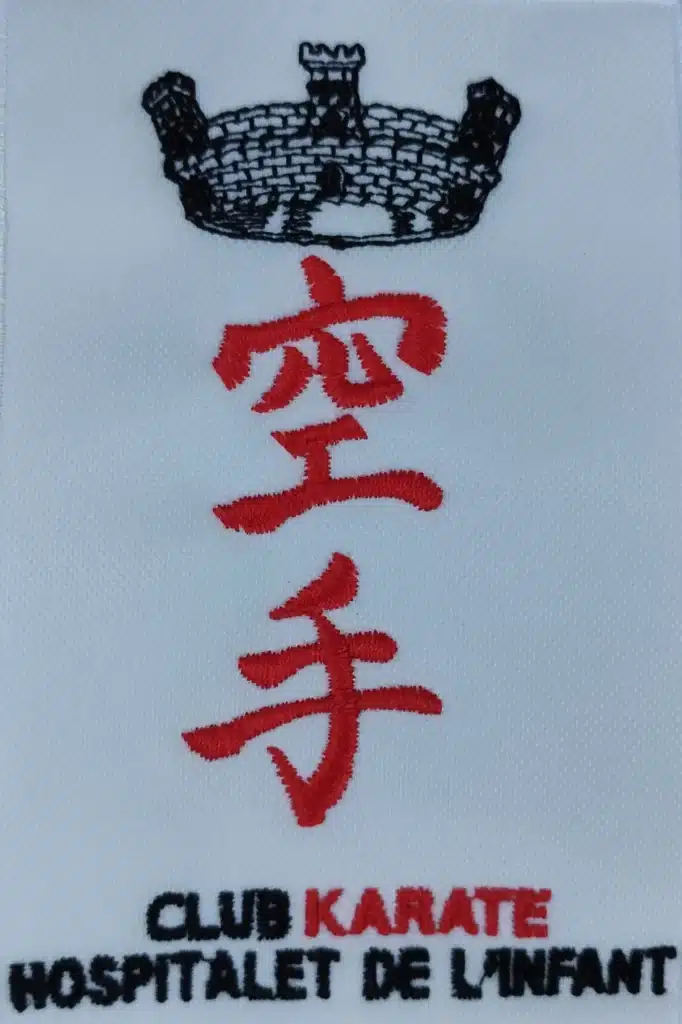 空手
CLUB KARATE
HOSPITALET DE L'INFANT